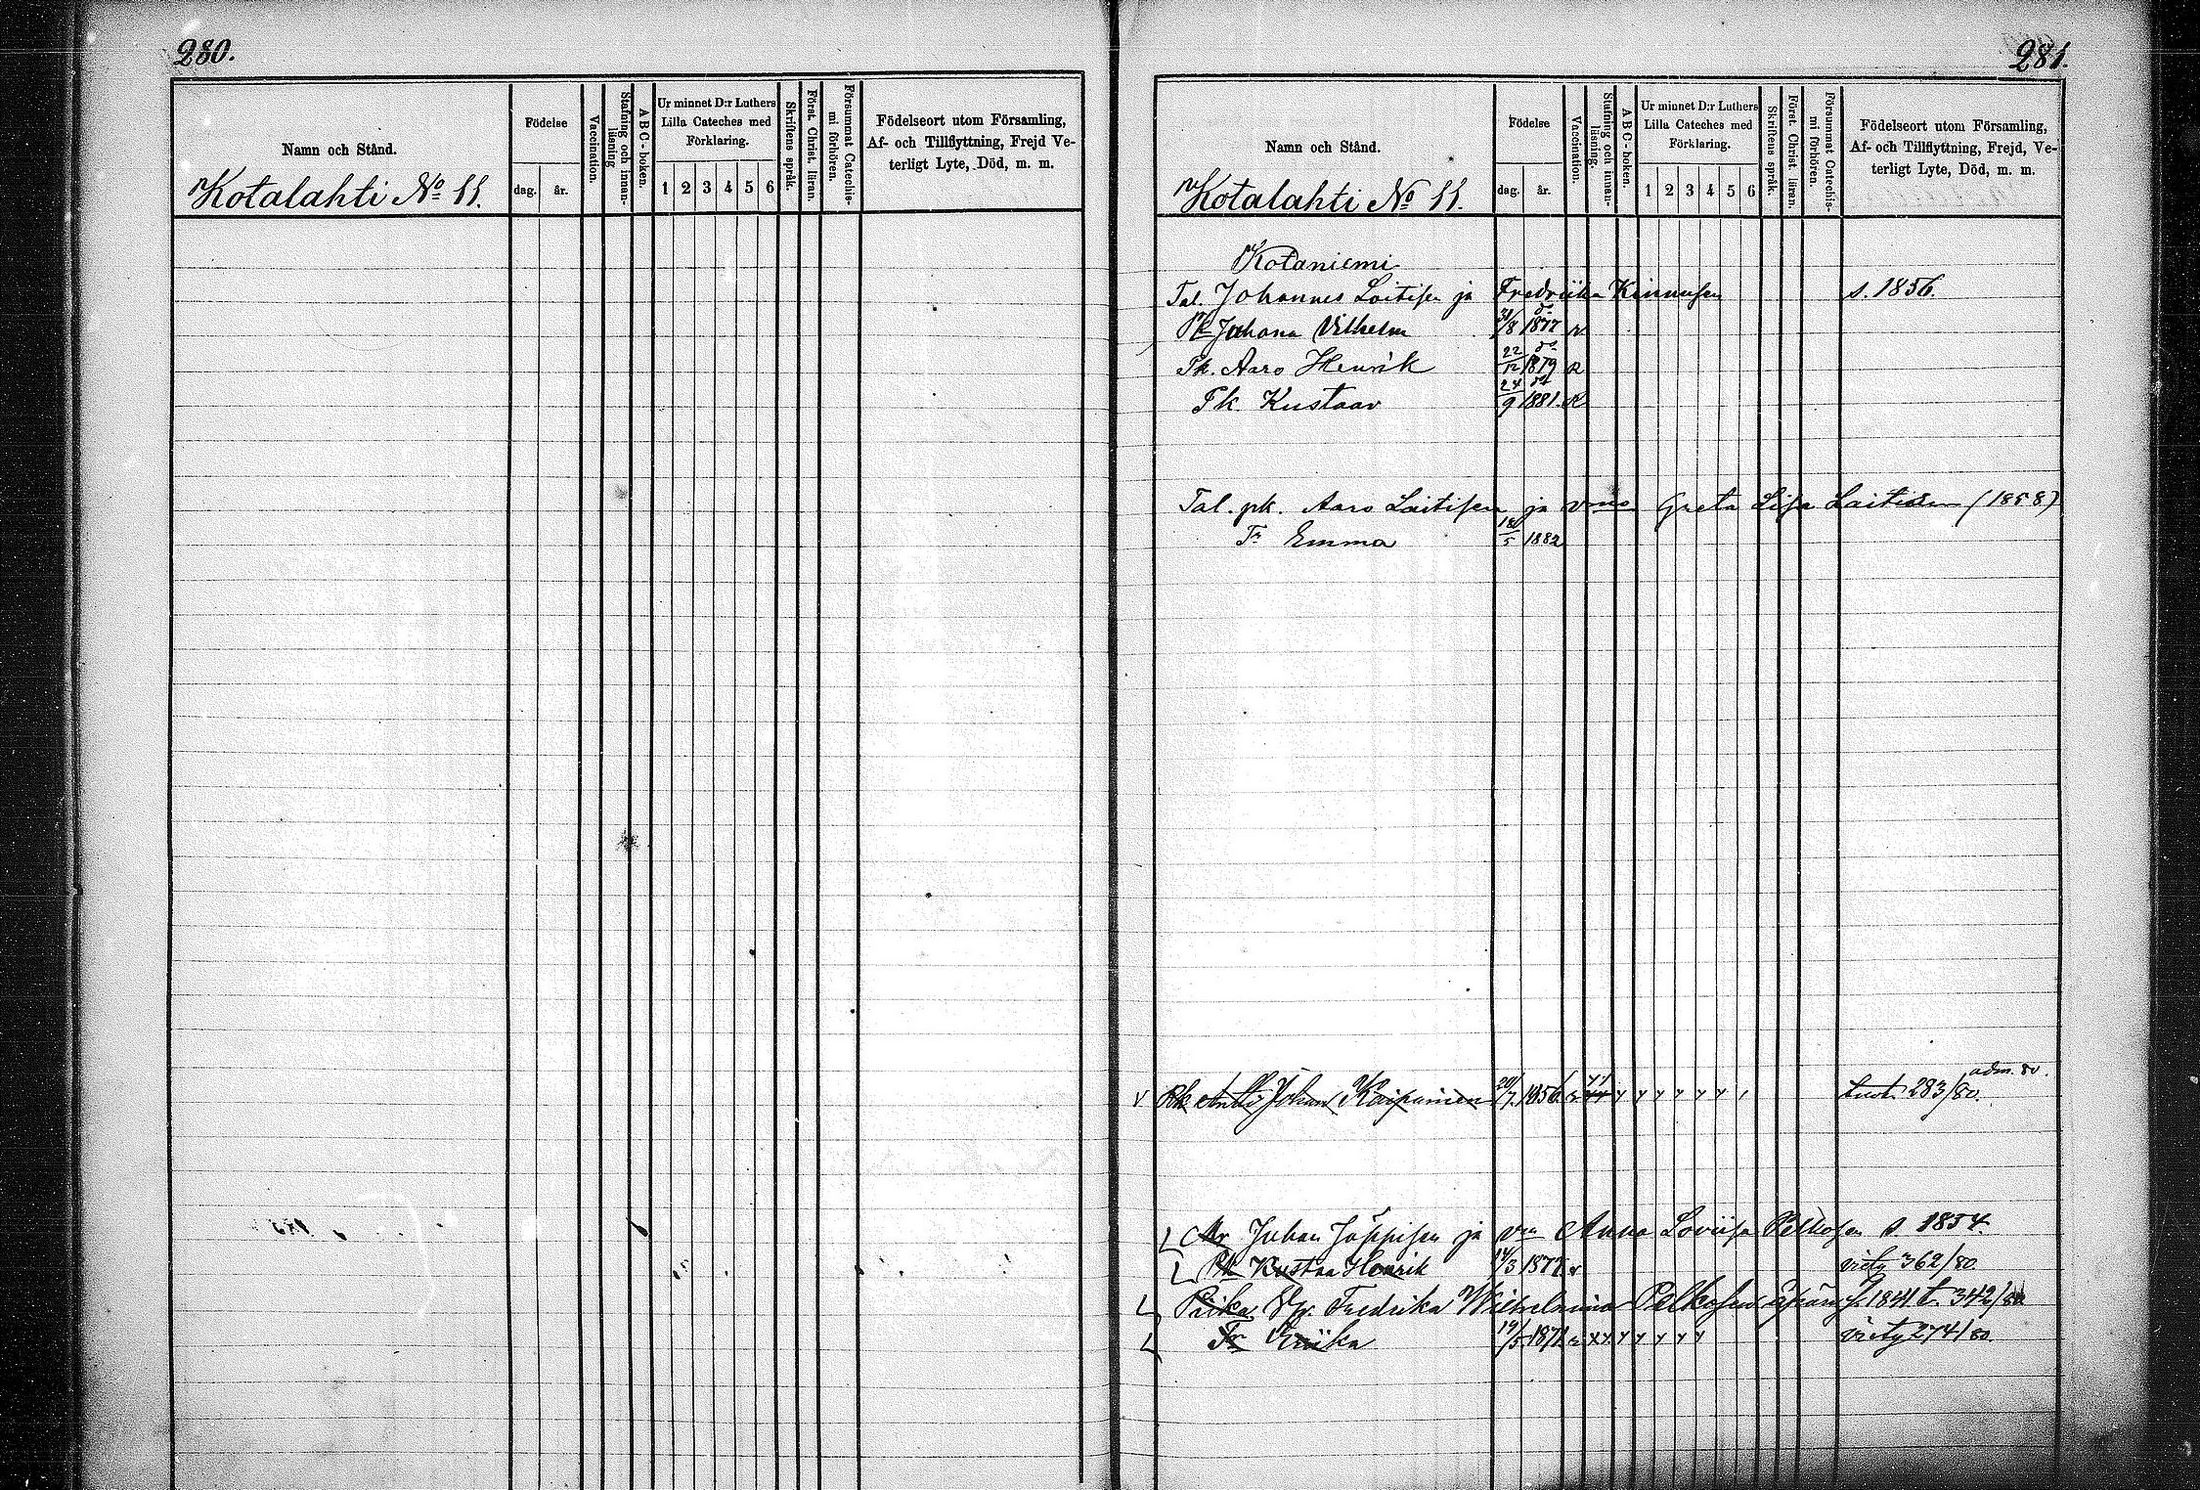 280.
Namn och Stånd.
Kotalahti No 11.
Födelse
dag. år.
Vaccination.
Stafning och innanläsning
A B C - boken.
Ur minnet D:r Luthers
Lilla Cateches med
Förklaring.
1 2 3 4 5 6
Skriftens språk.
Först. Christ. läran.
Försummat Catechismi förhören.
Födelseort utom Församling,
Af- och Tillflyttning, Frejd Ve-
terligt Lyte, Död, m. m.
281.
Namn och Stånd.
Kotalahti No 11.
Födelse
dag. år.
Vaccination.
Stafning och innanläsning.
A B C - boken.
Ur minnet D:r Luthers
Lilla Cateches med
Förklaring.
1 2 3 4 5 6
Skriftens språk.
Först. Christ. läran.
Försummat Catechismi förhören.
Födelseort utom Församling,
Af- och Tillflyttning, Frejd, Ve-
terligt Lyte, Död, m. m.
Kotaniemi
Tal. Johannes Laitisen ja Fredriika Kinnusen s. 1856.
Pk Juhana Vilhelm 30/8 1877 R
Pk. Aaro Henrik 22/12 1879 R
Pk. Kustaav 24/9 1881. R
Tal. pk. Aaro Laitisen ja vmo Greta Lisa Laitisen (1858)
Tr Emma 18/5 1882
Rk Antti Johan Kaipainen 20/7 1856. adm. 80.
tuot. 283/80.
Mr Juhan Jäppisen ja vm Anna Loviisa Pelkosen s. 1854.
Pk Kustaa Henrik 14/3 1877 viety 362/80
Piika Fredrika Wilhelmina Pelkosen äpärä s. 1841 t. 342/80
Tr Eriika 19/5 1871 viety 274/80